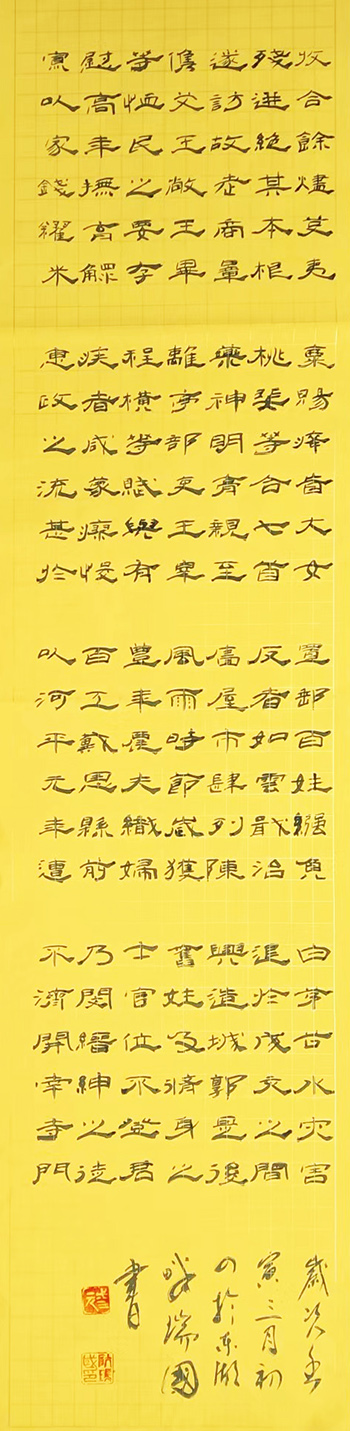 收合餘燼芟夷
殘迸絕其本根
遂訪故老商量
儁艾王敞王畢
等恤民之要存
慰高年撫育鰥
寡以家錢糴米
粟賜癃盲大女
桃婓等合七首
藥神明膏親至
離亭部吏王宰
程橫等賦與有
疾者咸蒙瘳悛
惠政之流甚於
置郵百姓繦負
反者如雲戢治
廧屋市肆列陳
風雨時節歲獲
豐年農夫織婦
百工戴恩縣前
以河平元年遭
白茅谷水灾害
退於戌亥之間
興造城郭是後
舊姓及脩身之
士官位不登君
乃閔縉紳之徒
不濟開南寺門
歲次壬
寅三月初
於東湖
瑞國
書